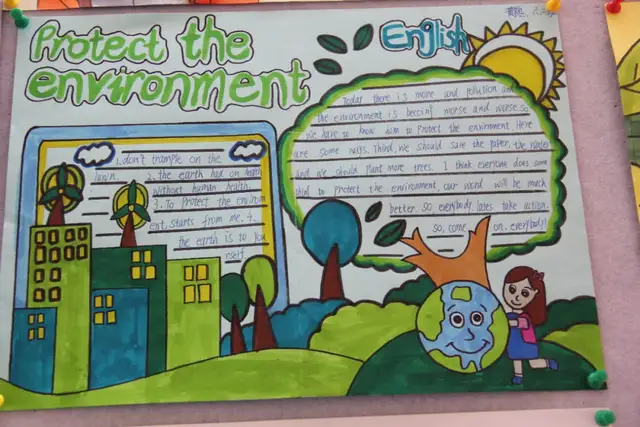 Protect the
environment
English
1. don't trample on the
lawn. 2. the earth had on health
without human health.
3. To Protect the environm
ent, starts from me. 4.
the earth is to you
rself.
Today there is more and pollution and
the environment is becoinf morse and worse. so
we have to know him to Protect the enironment. Here
are some ways. Third, we should save the paper, the water
and we should plant more trees. I think everyone does some
thind to protect the environment, our word will be much
better. SO, everybody. lates take action.
so, come on. everybody!